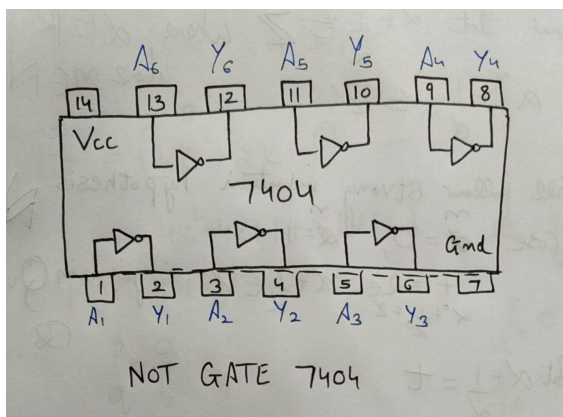 A6 Y6 A5 Y5 A4 Y4
14 13 12 11 10 9 8
Vcc
7404
Gnd
1 2 3 4 5 6 7
A1 Y1 A2 Y2 A3 Y3
NOT GATE 7404